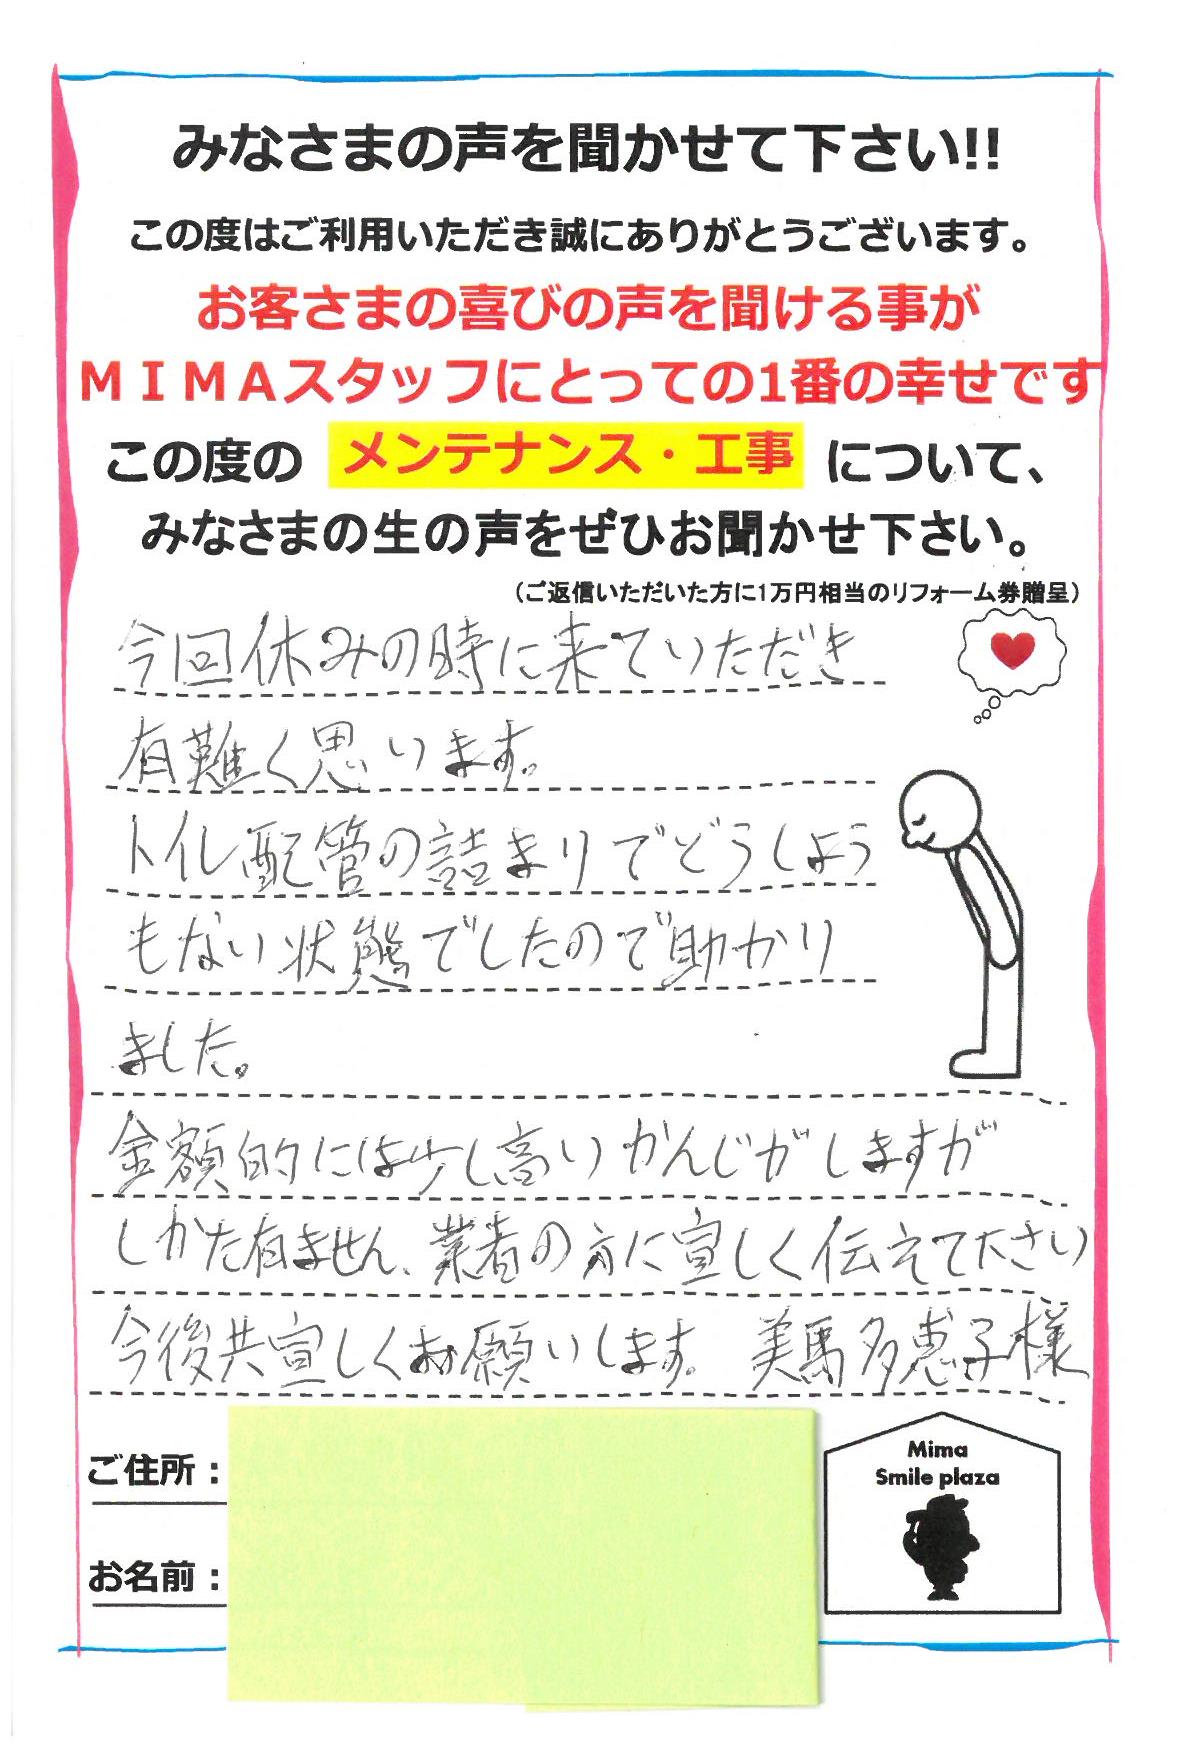 みなさまの声を聞かせて下さい!!
この度はご利用いただき誠にありがとうございます。
お客さまの喜びの声を聞ける事が
ＭＩＭＡスタッフにとっての1番の幸せです
この度の メンテナンス・工事 について、
みなさまの生の声をぜひお聞かせ下さい。
（ご返信いただいた方に1万円相当のリフォーム券贈呈）
今回休みの時に来ていただき
有難く思います。
トイレ配管の詰まりでどうしよう
もない状態でしたので助かり
ました。
金額的には少し高いかんじがしますが
しかた有ません、業者の方に宣しく伝えて下さい
今後共宣しくお願いします。 美馬多恵子様
ご住所：
お名前：
Mima
Smile plaza